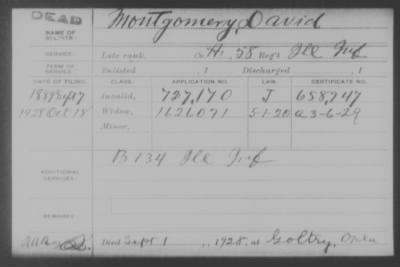 DEAD
NAME OF SOLDIER:
Montgomery, David
SERVICE:
Late rank, Co. H, 58 Reg't Ill Inf
TERM OF SERVICE:
Enlisted , 1 Discharged , 1
DATE OF FILING. CLASS. APPLICATION NO. LAW. CERTIFICATE NO.
1889 17 Invalid, 727,170 J 658,747
1928 Oct 18 Widow, 1626071 5-1-20 a 3-6-29
Minor,
ADDITIONAL SERVICES:
B 134 Ill Inf
REMARKS:
Died Sept 1 , 1928, at Goltry, Okla